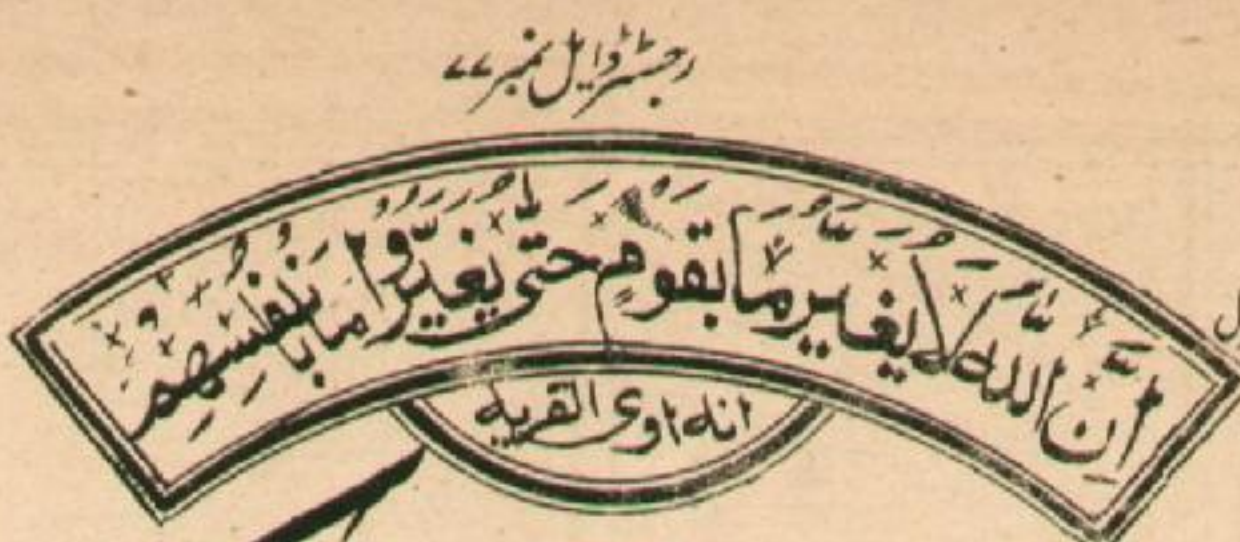 رجسٹرڈ ایل نمبر ۷۷
اِنَّ اللّٰهَ لَا یُغَیِّرُ مَا بِقَوْمٍ حَتّٰی یُغَیِّرُوْا مَا بِاَنْفُسِهِمْ
انه اوی القریه